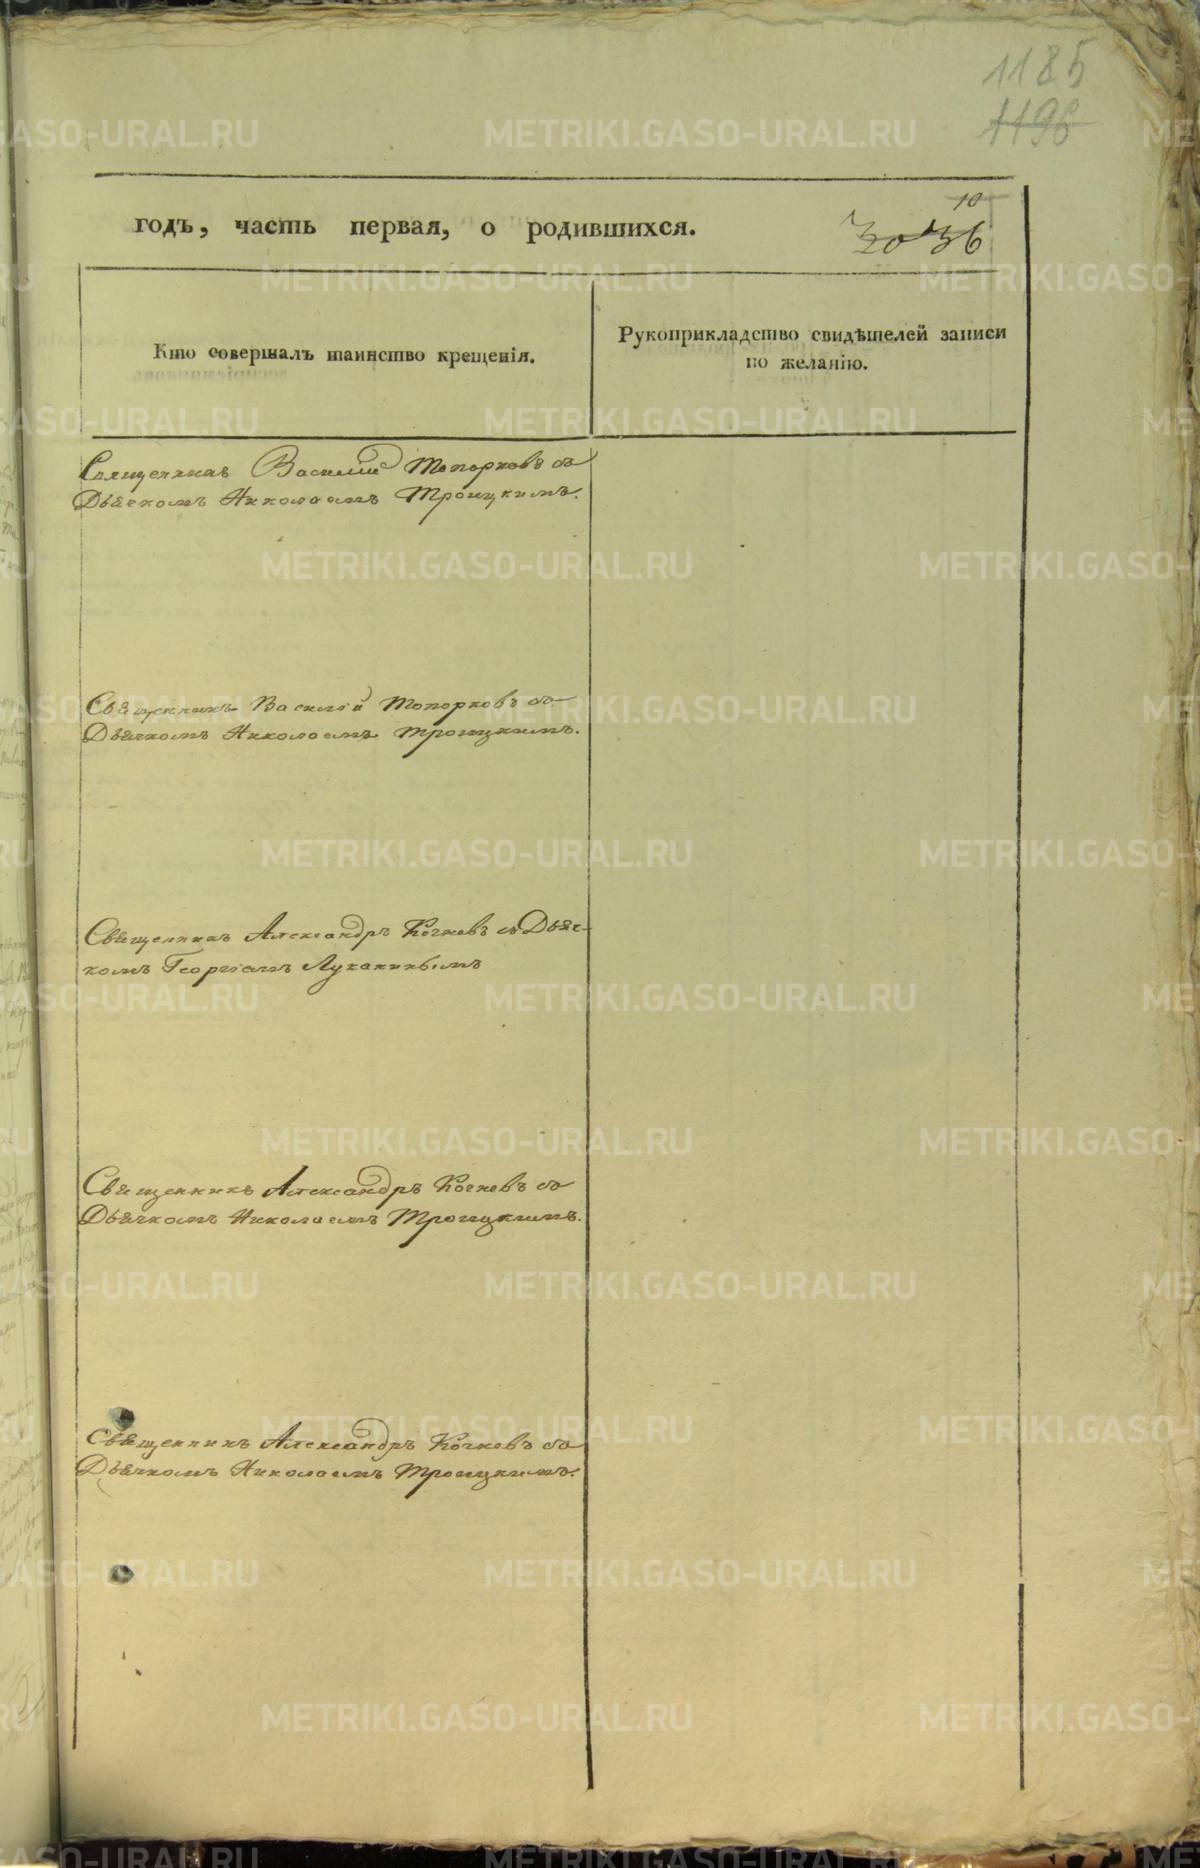 1185
1196
10
годъ, часть первая, о родившихся.
3036
Кто совершалъ таинство крещенія.
Рукоприкладство свидѣтелей записи
по желанію.
Священникъ Василій Топорковъ съ
Дьячкомъ Николаемъ Троицкимъ.
Священникъ Василій Топорковъ съ
Дьячкомъ Николаемъ Троицкимъ.
Священникъ Александръ Кочневъ съ Дьяч-
комъ Георгіемъ Луканинымъ
Священникъ Александръ Кочневъ съ
Дьячкомъ Николаемъ Троицкимъ.
Священникъ Александръ Кочневъ съ
Дьячкомъ Николаемъ Троицкимъ.
METRIKI.GASO-URAL.RU